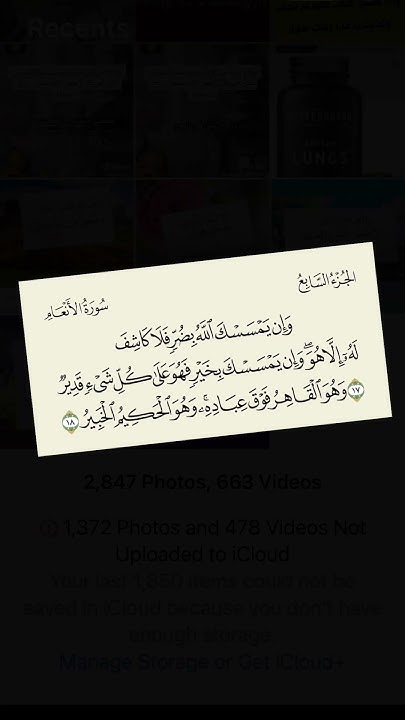 Recents
LUNGS
الجُزْءُ السَّابِعُ
سُورَةُ الأَنْعَامِ
وَإِن يَمْسَسْكَ ٱللَّهُ بِضُرٍّ فَلَا كَاشِفَ
لَهُۥٓ إِلَّا هُوَۖ وَإِن يَمْسَسْكَ بِخَيْرٍ فَهُوَ عَلَىٰ كُلِّ شَىْءٍ قَدِيرٌ
١٧ وَهُوَ ٱلْقَاهِرُ فَوْقَ عِبَادِهِۦۚ وَهُوَ ٱلْحَكِيمُ ٱلْخَبِيرُ ١٨
2,847 Photos, 663 Videos
1,372 Photos and 478 Videos Not
Uploaded to iCloud
Your last 1,850 items could not be
saved in iCloud because you don't have
enough storage.
Manage Storage or Get iCloud+